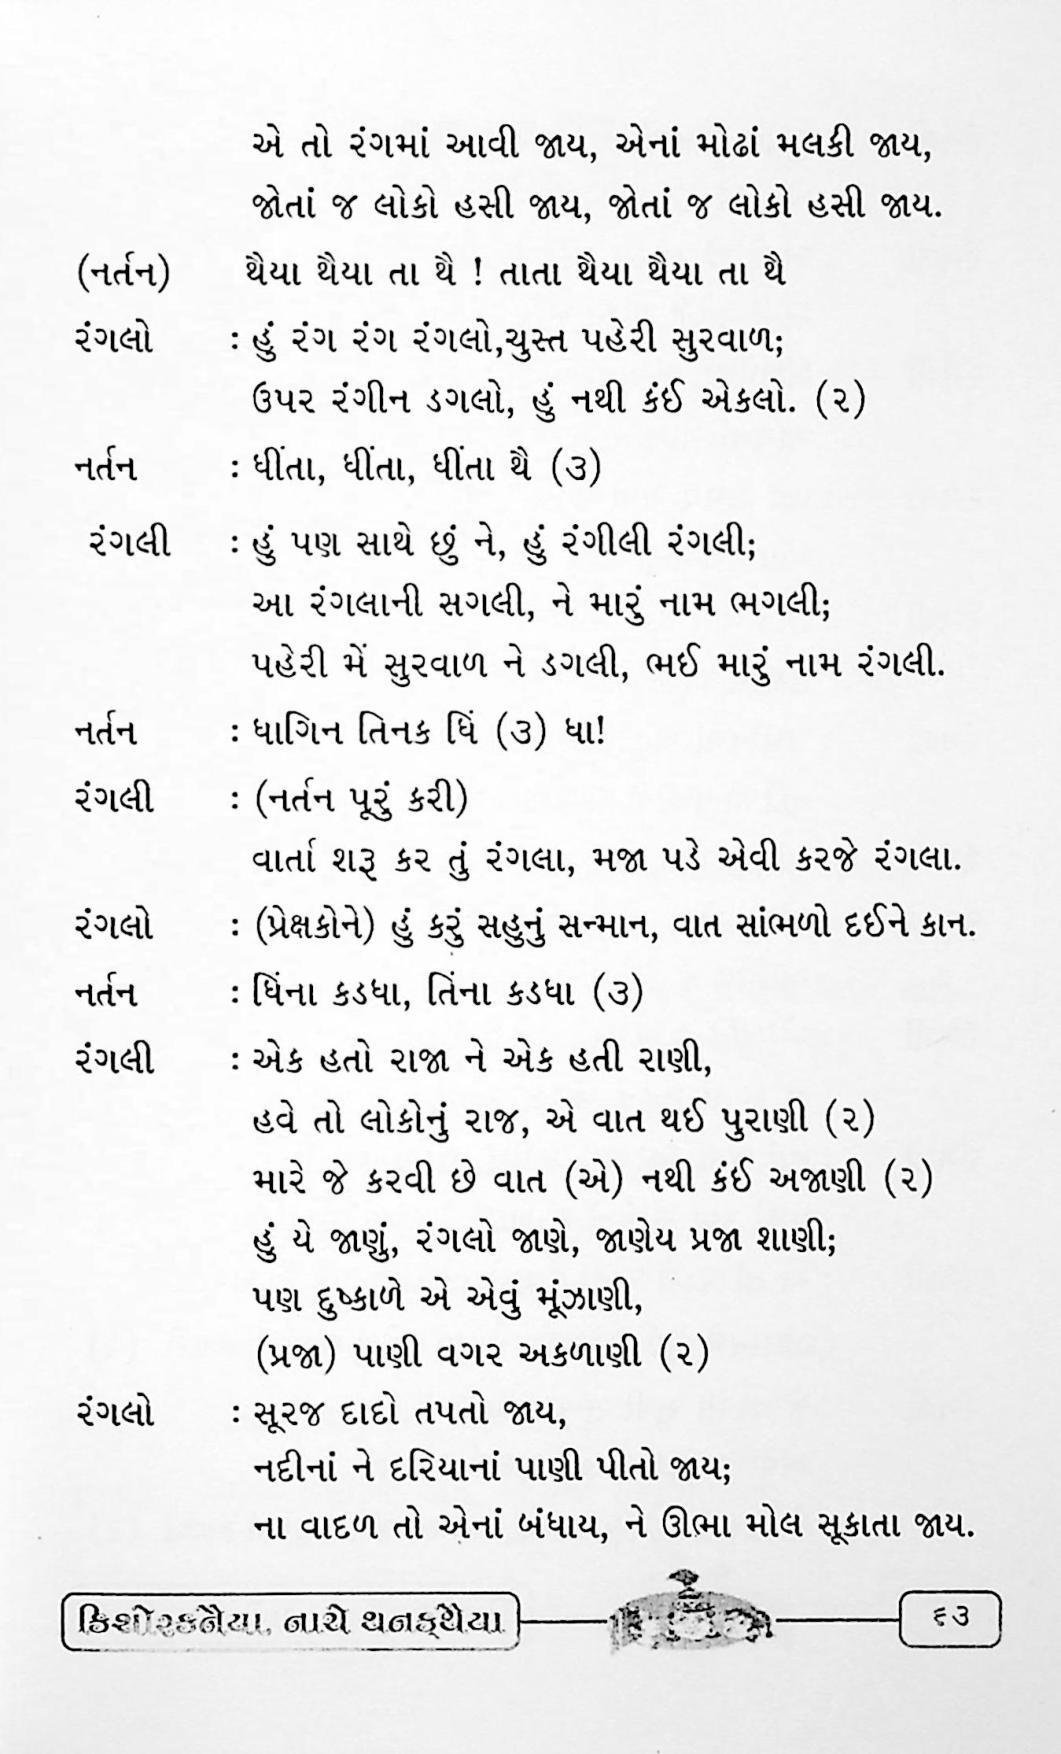 એ તો રંગમાં આવી જાય, એનાં મોઢાં મલકી જાય,
જોતાં જ લોકો હસી જાય, જોતાં જ લોકો હસી જાય.
(નર્તન) થૈયા થૈયા તા થૈ ! તાતા થૈયા થૈયા તા થૈ
રંગલો : હું રંગ રંગ રંગલો,ચુસ્ત પહેરી સુરવાળ;
ઉપર રંગીન ડગલો, હું નથી કંઈ એકલો. (૨)
નર્તન : ધીંતા, ધીંતા, ધીંતા થૈ (૩)
રંગલી : હું પણ સાથે છું ને, હું રંગીલી રંગલી;
આ રંગલાની સગલી, ને મારું નામ ભગલી;
પહેરી મેં સુરવાળ ને ડગલી, ભઈ મારું નામ રંગલી.
નર્તન : ધાગિન તિનક ધિં (૩) ધા!
રંગલી : (નર્તન પૂરું કરી)
વાર્તા શરૂ કર તું રંગલા, મજા પડે એવી કરજે રંગલા.
રંગલો : (પ્રેક્ષકોને) હું કરું સહુનું સન્માન, વાત સાંભળો દઈને કાન.
નર્તન : ધિંના કડધા, તિંના કડધા (૩)
રંગલી : એક હતો રાજા ને એક હતી રાણી,
હવે તો લોકોનું રાજ, એ વાત થઈ પુરાણી (૨)
મારે જે કરવી છે વાત (એ) નથી કંઈ અજાણી (૨)
હું યે જાણું, રંગલો જાણે, જાણેય પ્રજા શાણી;
પણ દુષ્કાળે એ એવું મૂંઝાણી,
(પ્રજા) પાણી વગર અકળાણી (૨)
રંગલો : સૂરજ દાદો તપતો જાય,
નદીનાં ને દરિયાનાં પાણી પીતો જાય;
ના વાદળ તો એનાં બંધાય, ને ઊભા મોલ સૂકાતા જાય.
કિશોરકનૈયા, નાચે થનક્થૈયા ૬૩